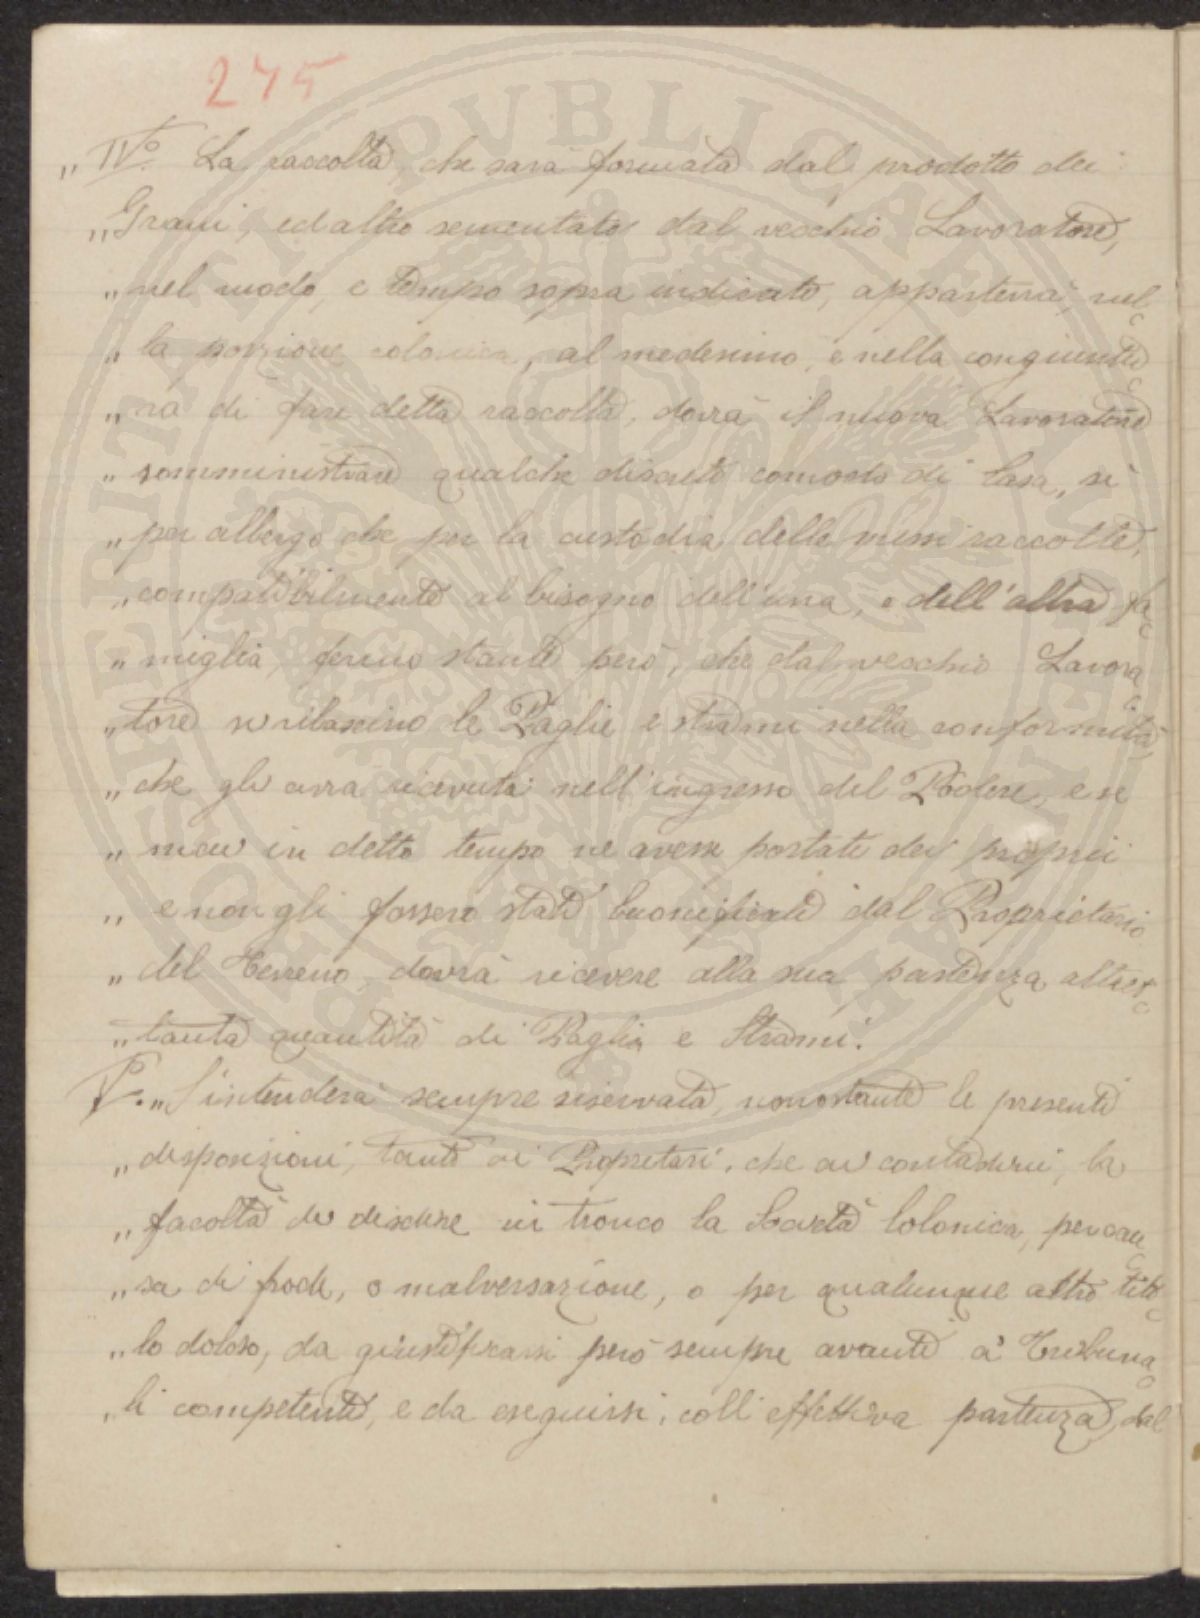 275
„ IV.º La raccolta, che sarà formata dal prodotto dei
„ Grani, ed altro sementato dal vecchio Lavoratore,
„ nel modo, e tempo sopra indicato, apparterrà, nel
„ la porzione colonica, al medesimo, e nella congiuntu
„ ra di fare detta raccolta, dovrà il nuova Lavoratore
„ somministrare qualche discreto comodo di Casa, sì
„ per albergo che per la custodia delle messi raccolte,
„ compatibilmente al bisogno dell'una, e dell'altra fa
„ miglia, fermo stante però, che dal vecchio Lavora
„ tore si rilascino le Paglie e strami nella conformità
„ che gli avrà ricevuti nell'ingresso del Podere, e se
„ mai in detto tempo ne avesse portati dei proprii
„ e non gli fossero stati buonificati dal Proprietario
„ del Terreno, dovrà ricevere alla sua partenza altret
„ tanta quantità di Paglia e Strami.
V. „ S'intenderà sempre riservata, nonostante le presenti
„ disposizioni, tanto ai Proprietari, che ai contadini, la
„ facoltà di disdire in tronco la Società Colonica, per cau
„ sa di frode, o malversazione, o per qualunque altro tito
„ lo doloso, da giustificarsi però sempre avanti a' Tribuna
„ li competenti, e da eseguirsi, coll'effettiva partenza, dal
PROSPERITATI PVBLICAE